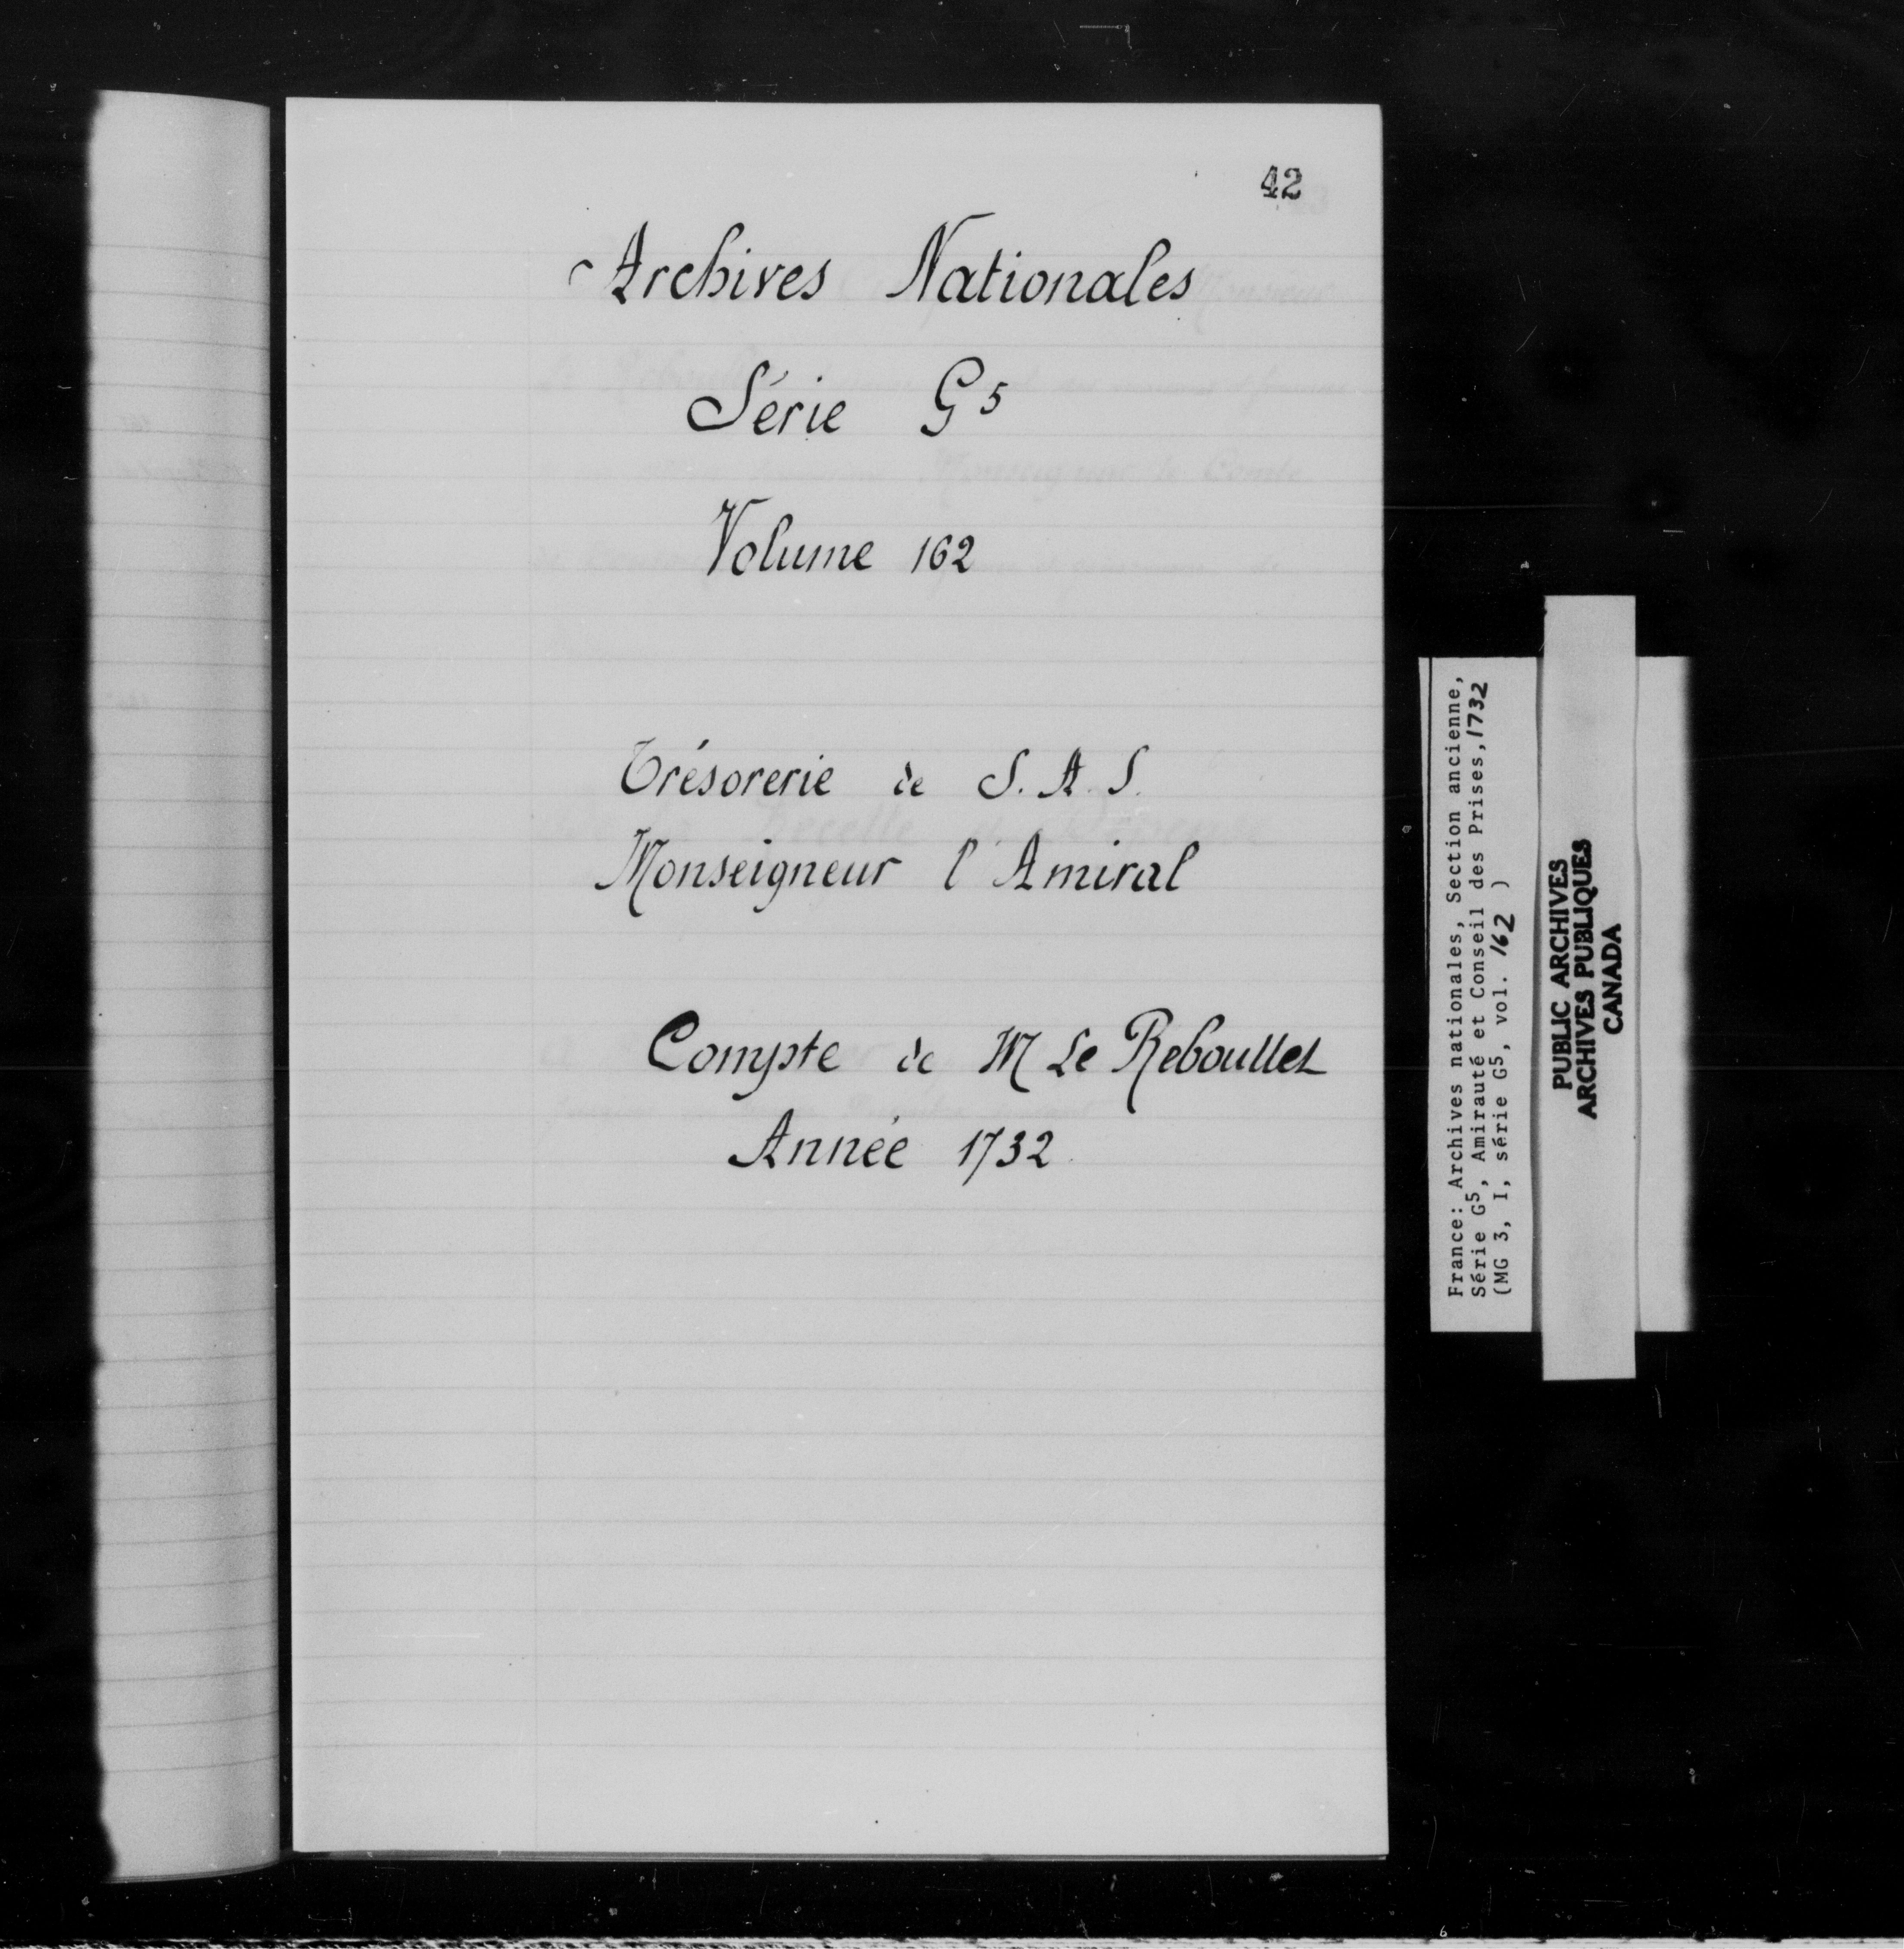 42
Archives Nationales
Série G5
Volume 162
Trésorerie de S. A. S.
Monseigneur l'Amiral
Compte de M Le Reboullet
Année 1732.
France: Archives nationales, Section ancienne,
Série G5, Amirauté et Conseil des Prises, 1732
(MG 3, I, série G5, vol. 162 )
PUBLIC ARCHIVES
ARCHIVES PUBLIQUES
CANADA